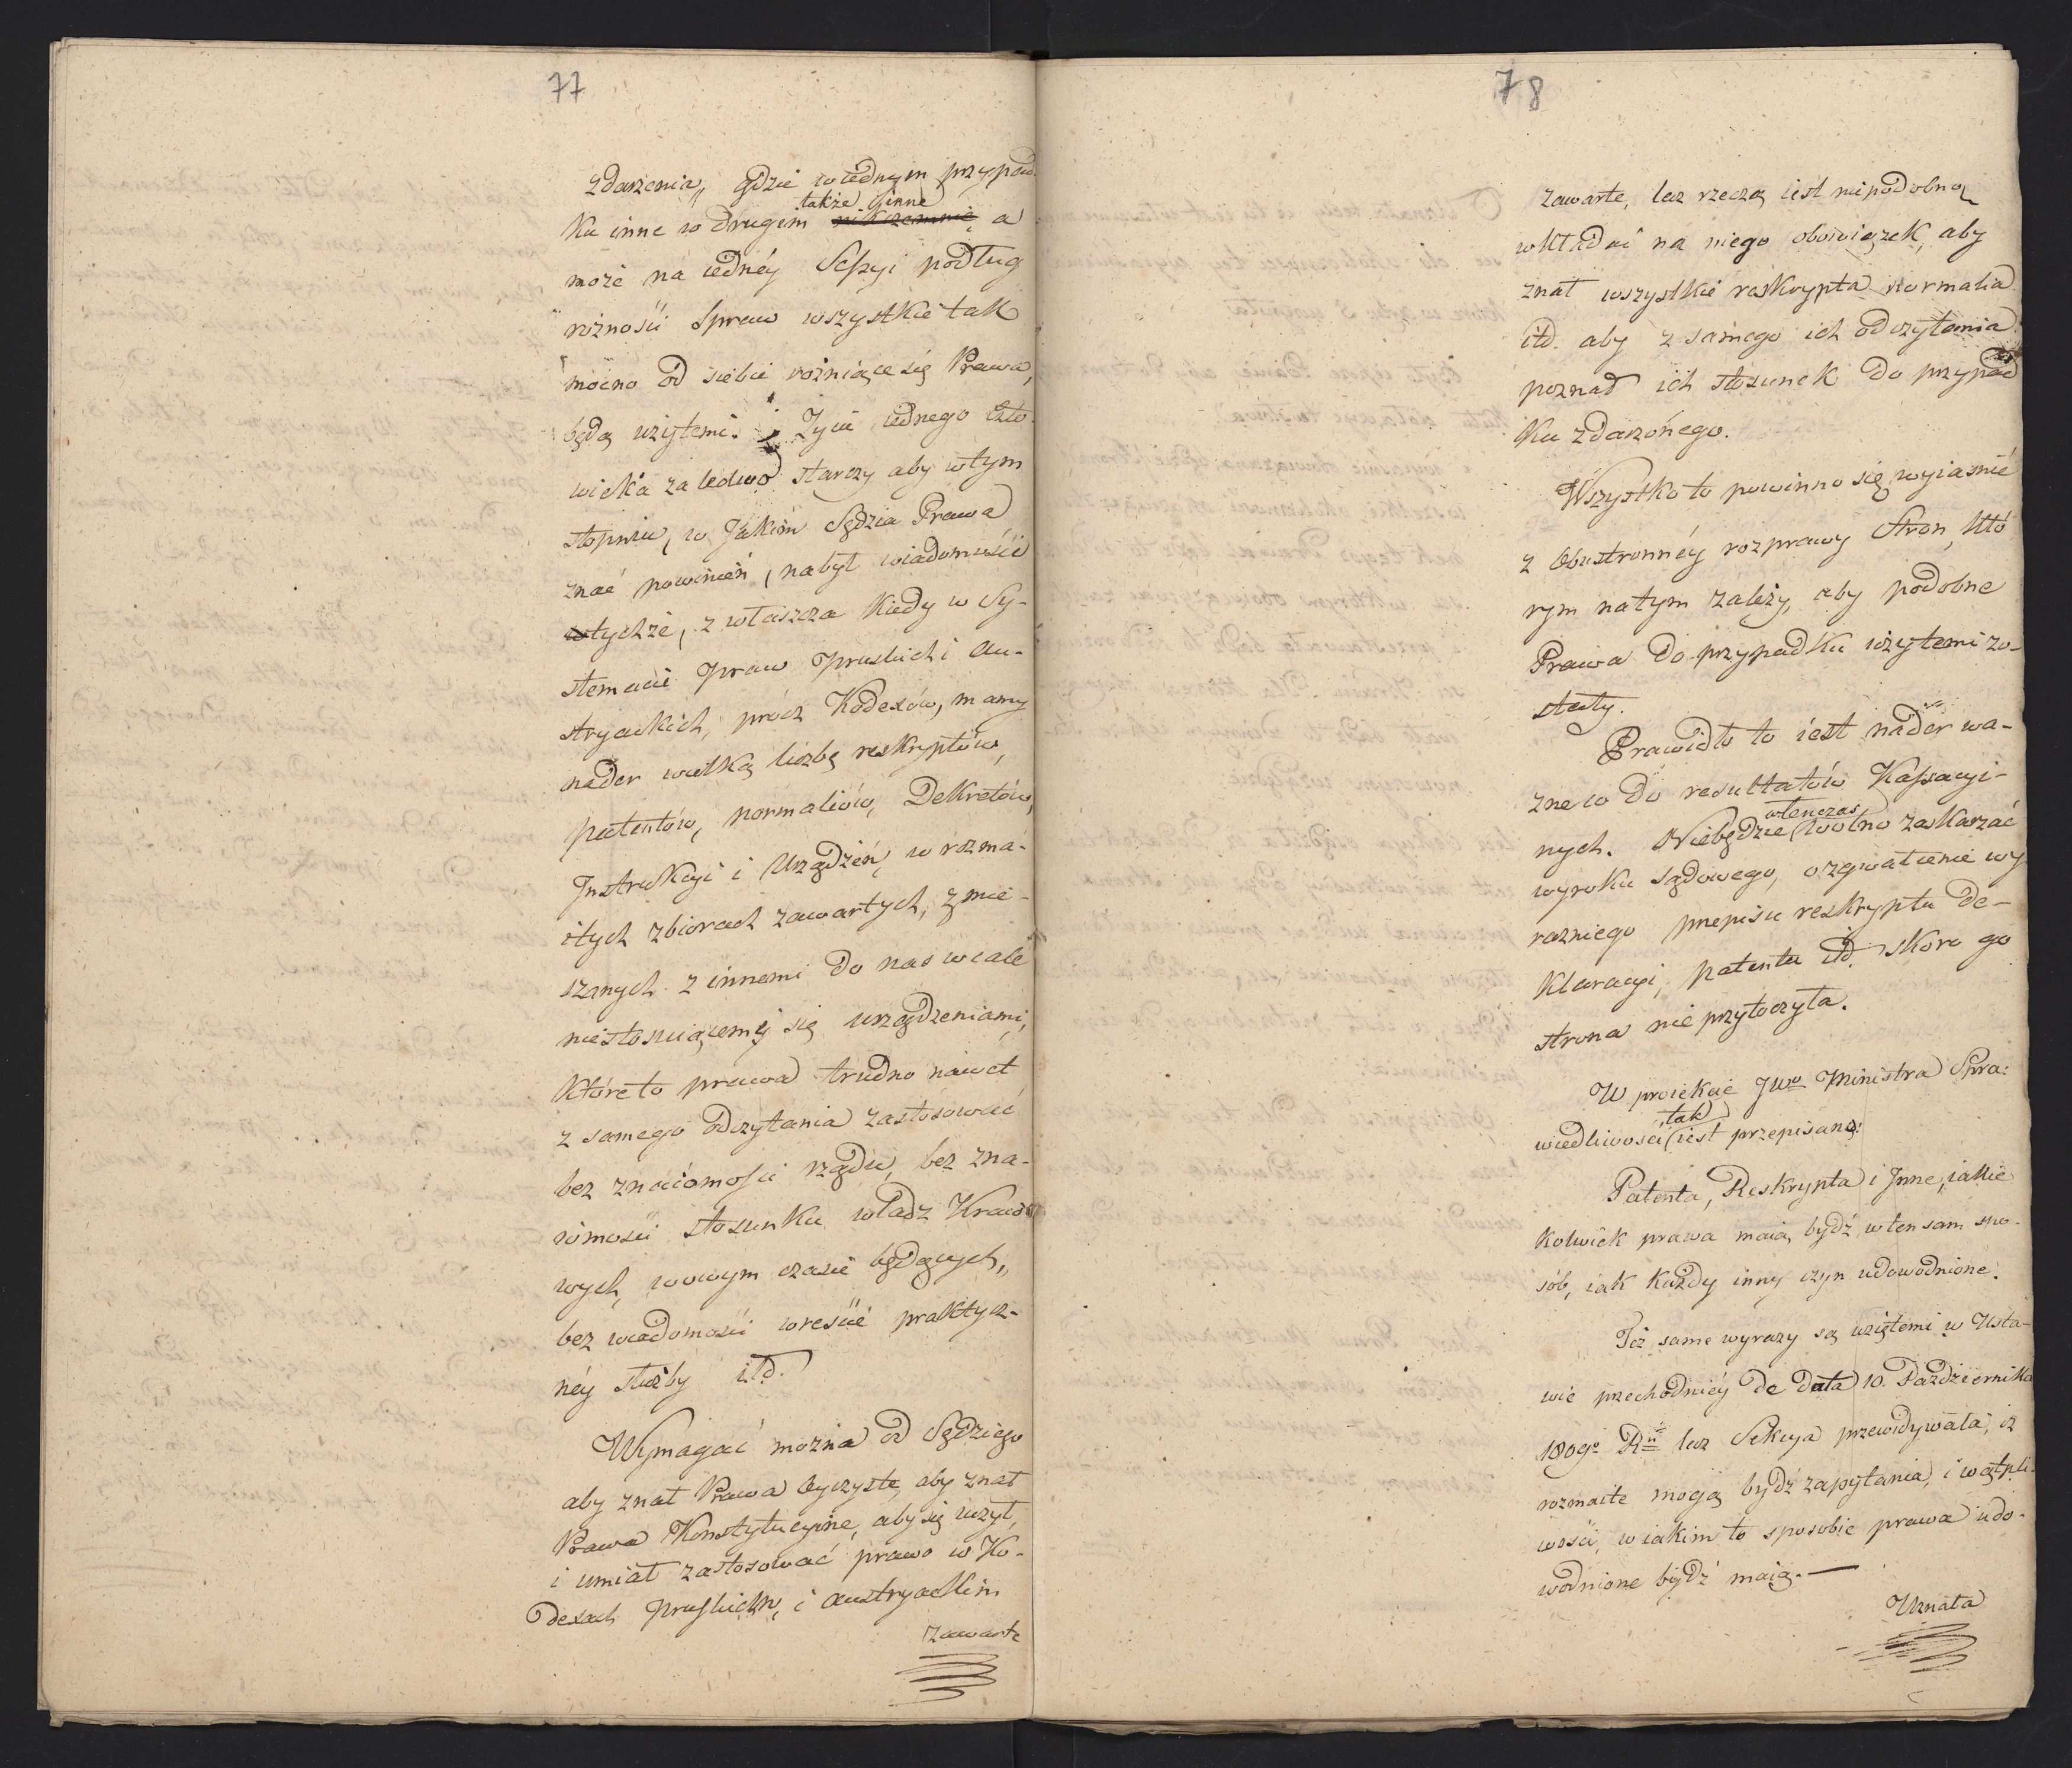 77
zdarzenia, gdzie w iednym przypad
ku inne w drugim także inne a
może na iedney Sessyi podług
rożności Spraw wszystkie tak
mocno od siebie rożniące się Prawa,
będą użytemi. Życie iednego czło
wieka zaledwo starczy aby w tym
stopniu, w Jakim Sędzia Prawa
znać powinien, nabył wiadomości
tychże, zwłaszcza kiedy w Sy-
stemacie praw pruskich i au-
stryackich, prócz Kodexów, mamy
nader wielką liczbę reskryptów,
patentów, normaliów, Dekretów,
Instrukcyi i Urządzeń, w rozma-
itych zbiorach zawartych, zmie-
szanych z innemi do nas wcale
niestosuiącemi się urządzeniami,
które to prawa trudno nawet
z samego odczytania zastosować
bez znaiomości rządu, bez zna-
iomości stosunku władz Kraio
wych, w owym czasie będących,
bez wiadomości wreście praktycz-
néy służby itd.
Wymagać można od Sędziego
aby znał Prawa Oyczyste, aby znał
Prawa Konstytucyine, aby się uczył,
i umiał zastosować prawo w Ko-
dexach pruskich, i austryackim
zawarte
78
zawarte, lecz rzeczą iest niepodobną
wkładać na niego obowiązek, aby
znał wszystkie reskrypta normalia
itd. aby z samego ich odczytania
poznał ich stosunek do przypad
ku zdarzonego.
Wszystko to powinno się wyiaśnić
z Obustronnéy rozprawy Stron, któ
rym na tym zależy, aby podobne
Prawa do przypadku użytemi zo-
stały.
Prawidło to iest nader wa-
żne w do resultatów Kassacyi-
nych. Niebędzie wtenczas wolno zaskarżać
wyroku sądowego, o zgwałcenie wy
raźniego przepisu reskryptu De-
klaracyi, patentu itd. skoro go
strona nie przytoczyła.
W proiekcie JWo Ministra Spra:
wiedliwości tak iest przepisano:
Patenta, Reskrypta i Inne, iakie
kolwiek prawa maią bydź w ten sam spo-
sób, iak każdy inny czyn udowodnione.
Też same wyrazy są użytemi w Usta-
wie przechodniéy de data 10. Października
1809go Ru lecz Sekcya przewidywała, iż
rozmaite mogą bydź zapytania, i wątpli-
wości, w iakim to sposobie prawa udo-
wodnione bydź maią. —
Uznała